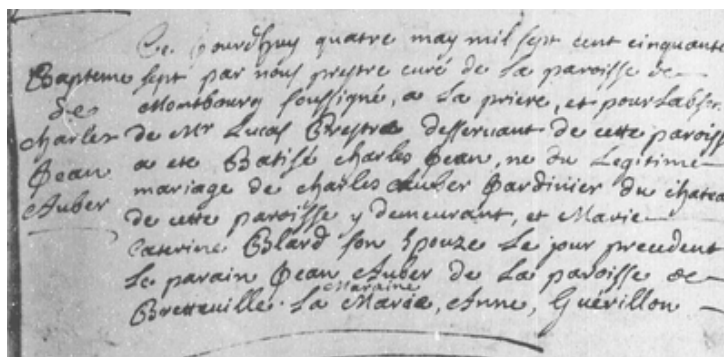 Ce jourdhuy quatre may mil sept cent cinquante
Bapteme
de
Charles
Jean
Auber
sept par nous prestre curé de La paroisse de
Montbourg soussigné, a La priere, et pour Labsen
de Mr Lucas Prestre desservant de cette paroiss
a eté Batisé charles Jean, né du Legitime
mariage de charles Auber Jardinier du chatea
de cette paroisse y demeurant, et Marie
Caterine Blard son Epouze Le jour precedent
Le parain Jean Auber de La paroisse de
Bretteuille. La Maraine Marie, Anne, Guérillon